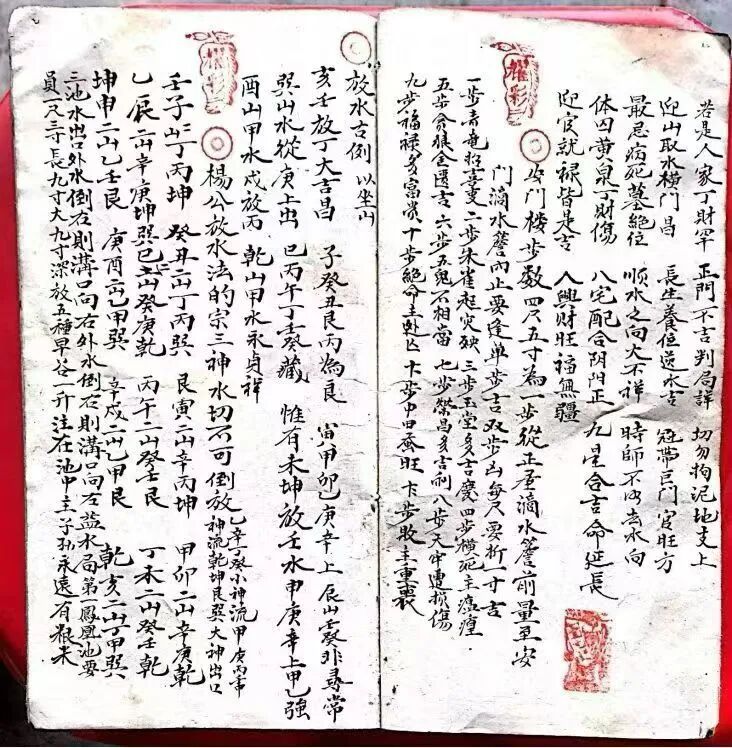 若是人家丁財罕 正門不吉判局詳 切勿拘泥地支上
迎山取水橫門昌 長生養位送水吉 冠帶巨門官旺方
最忌病死墓絕位 順水之向大不祥 時師不明去水向
体囚黄泉丁財傷 八宅配合阴阳正 九星合吉命延長
迎官就禄皆是吉 人興財旺福無疆
安门楼步数 四尺五寸為一步從正屋滴水簷前量至安
門滴水簷而止要逢单步吉双步凶每尺要折一寸吉
一步青竜招喜重 二步朱雀起灾殃 三步玉堂多吉慶四步橫死主瘟瘴
五步貪狼金匱吉 六步五鬼不相當 七步榮昌多吉利 八步天牢遭損傷
九步福禄多富貴 十步絕命主卦亡 十步中田蚕旺 十步敗主重喪
耀彩
放水古例 以坐山
亥壬放丁大吉昌 子癸丑艮丙為良 寅甲卯乙庚辛上 辰山壬癸非尋常
巽山水從庚上出 巳丙午丁壬癸藏 惟有未坤放壬水申庚辛上甲乙強
酉山甲水戍放丙 乾山甲水永貞祥
耀彩
楊公放水法的宗三神水切不可倒放 乙辛丁癸小神流甲庚丙壬中神流乾坤艮巽大神出口
壬子二山丁丙坤 癸丑二山丁丙巽 艮寅二山辛丙坤 甲卯二山辛庚乾
乙辰二山辛庚坤巽巳二山癸庚乾 丙午二山癸壬艮 丁未二山癸壬乾
坤申二山乙壬艮 庚酉二山乙甲巽 辛戍二山乙甲艮 乾亥二山丁甲巽
三池水出口外水倒右則溝口向右外水倒右則溝口向左益水局第鳳凰池要
員一尺三寸長九寸大九寸深放五種早谷一升注在池中主子孙永遠有根未